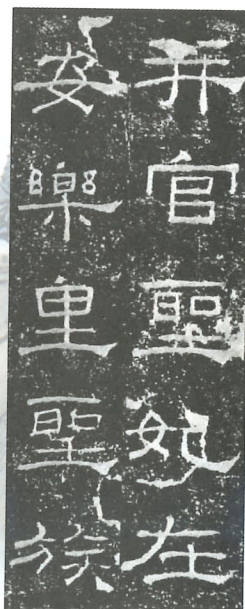 并官聖妃在
安樂里聖族